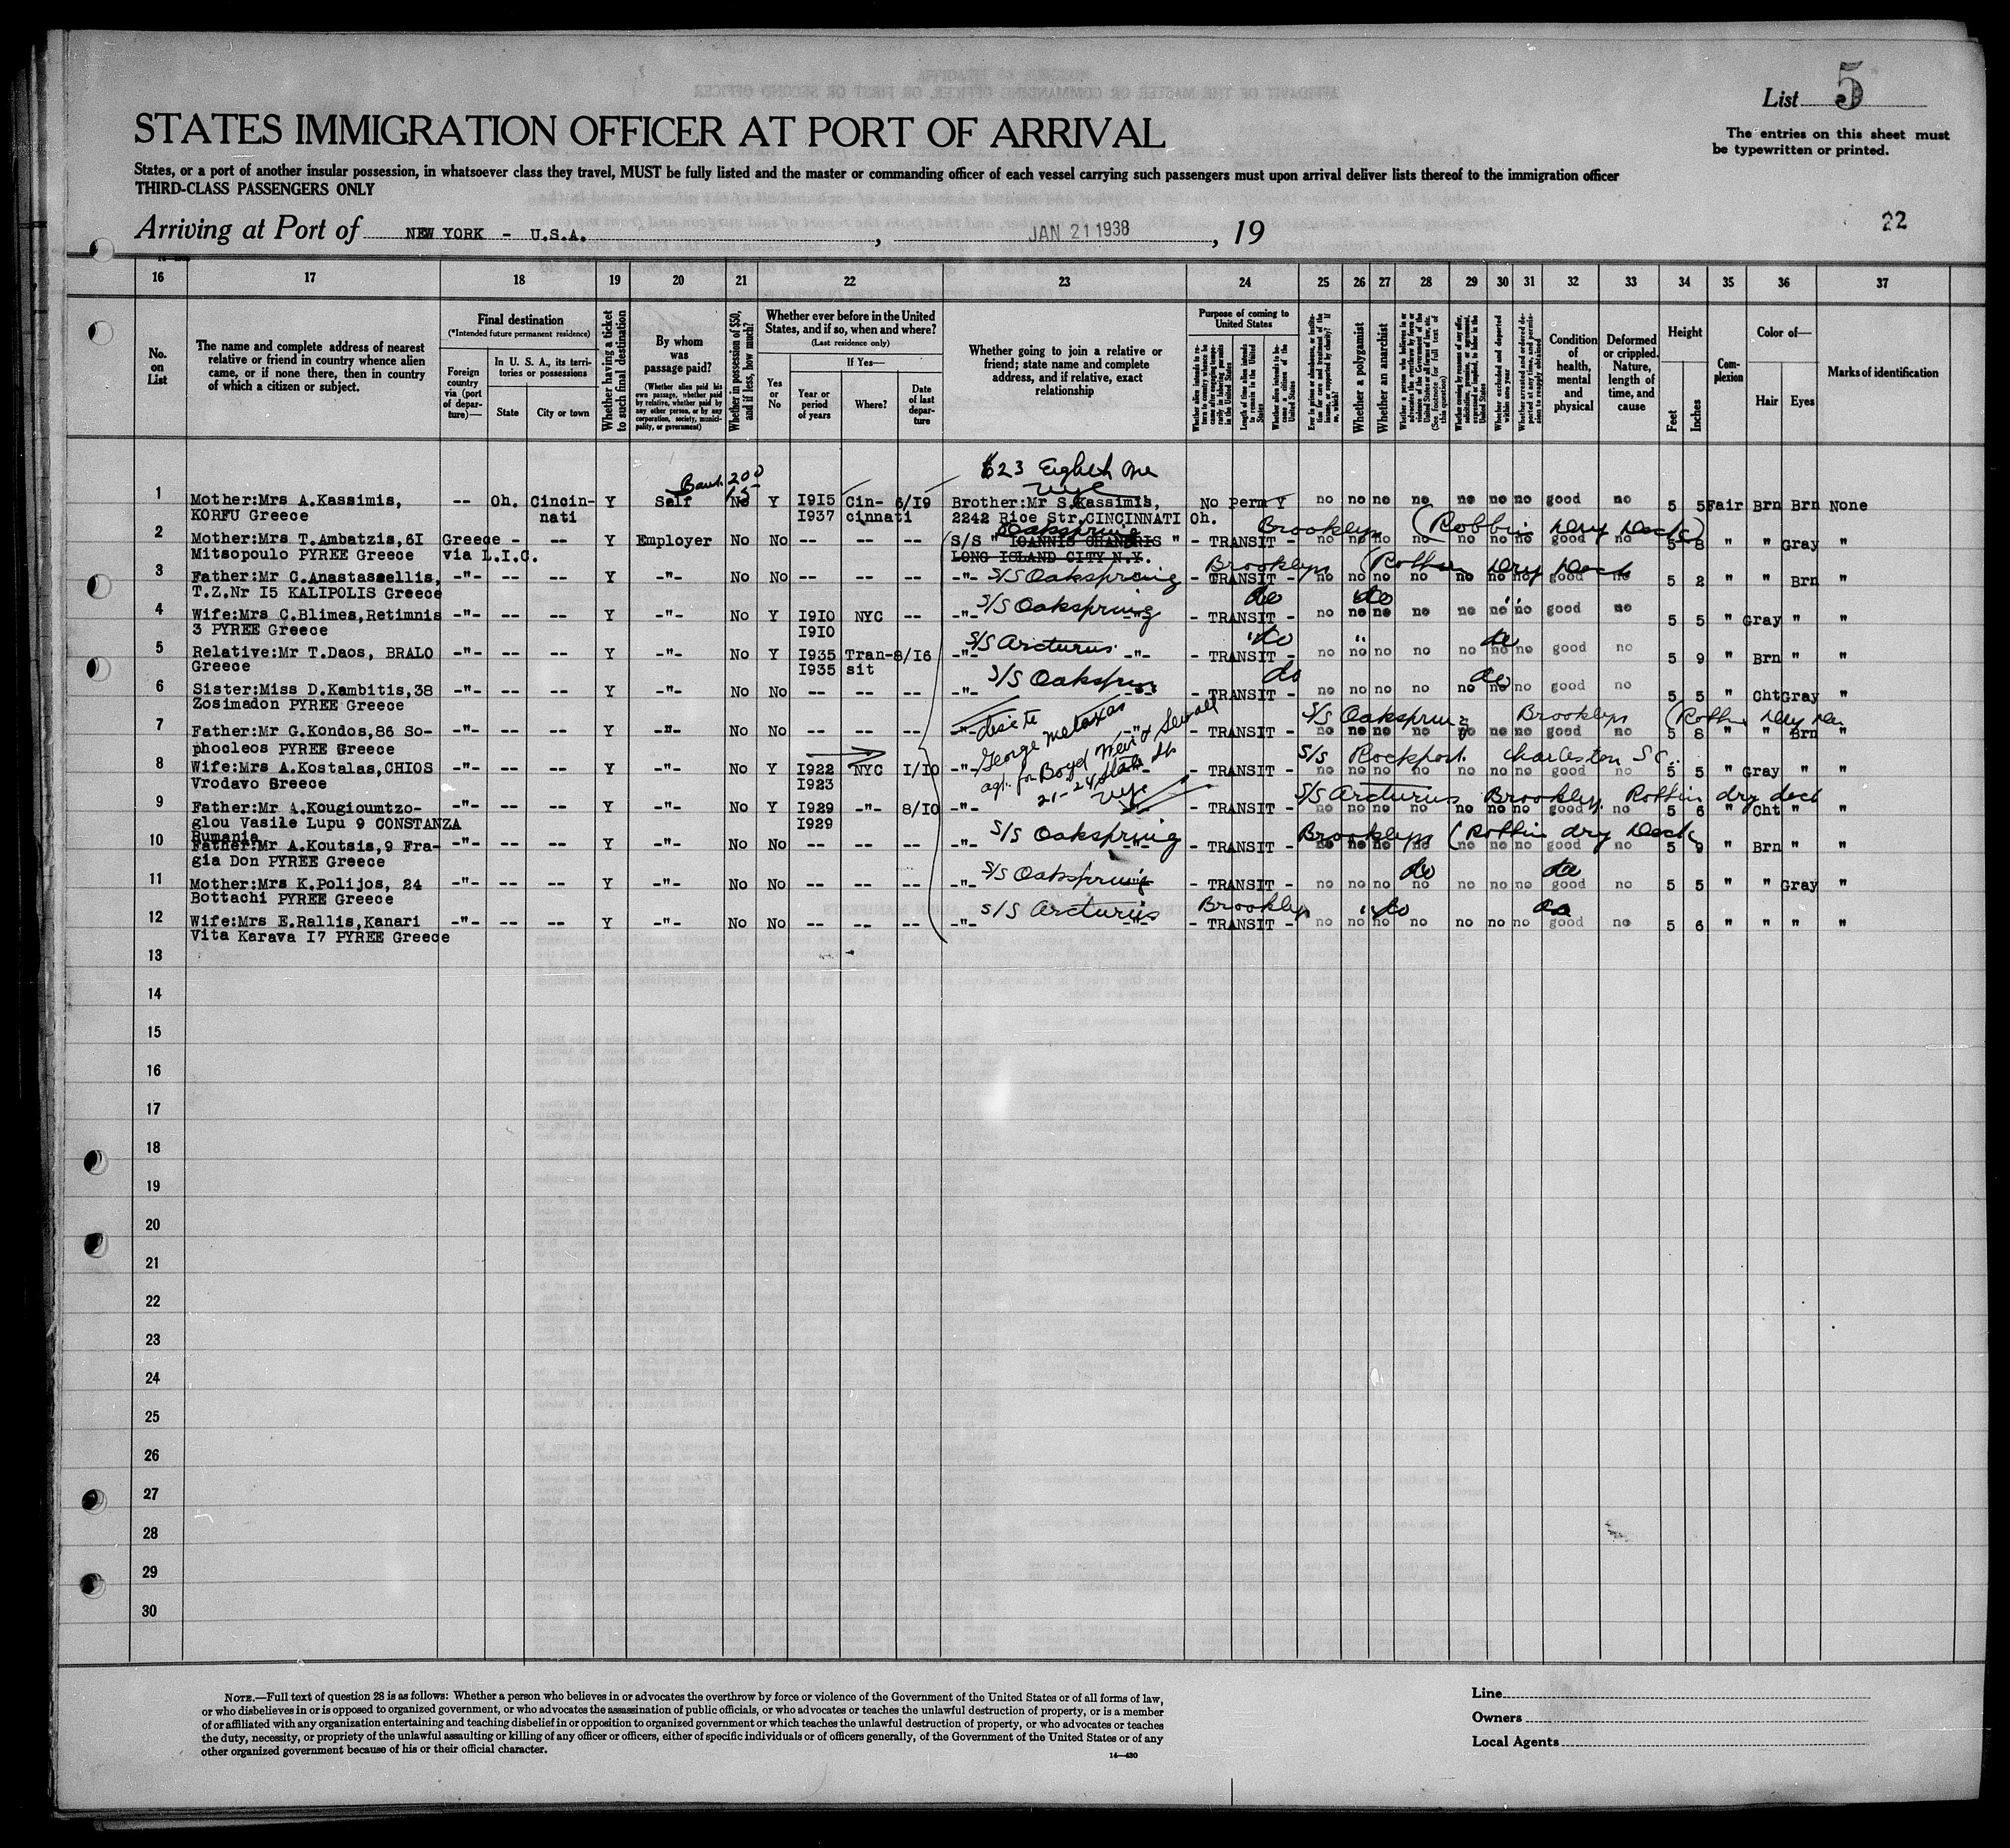 List 5
STATES IMMIGRATION OFFICER AT PORT OF ARRIVAL
The entries on this sheet must
be typewritten or printed.
States, or a port of another insular possession, in whatsoever class they travel, MUST be fully listed and the master or commanding officer of each vessel carrying such passengers must upon arrival deliver lists thereof to the immigration officer
THIRD-CLASS PASSENGERS ONLY
22
Arriving at Port of NEW YORK - U.S.A. , JAN 21 1938 , 19
16 17 18 19 20 21 22 23 24 25 26 27 28 29 30 31 32 33 34 35 36 37
No. on List
The name and complete address of nearest relative or friend in country whence alien came, or if none there, then in country of which a citizen or subject.
Final destination
(*Intended future permanent residence)
Foreign country via (port of departure)—
In U. S. A., its territories or possessions
State
City or town
Whether having a ticket to such final destination
By whom was passage paid?
(Whether alien paid his own passage, whether paid by relative, whether paid by any other person, or by any corporation, society, municipality, or government)
Whether in possession of $50, and if less, how much?
Whether ever before in the United States, and if so, when and where?
(Last residence only)
Yes or No
If Yes—
Year or period of years
Where?
Date of last departure
Whether going to join a relative or friend; state name and complete address, and if relative, exact relationship
Purpose of coming to United States
Length of time alien intends to remain in the United States
Whether alien intends to become a citizen of the United States
Whether a polygamist
Whether an anarchist
Whether excluded and deported within one year
Condition of health, mental and physical
Deformed or crippled. Nature, length of time, and cause
Height
Feet
Inches
Complexion
Color of—
Hair
Eyes
Marks of identification
623 Eighth Ave
Bank 200
15 NYC
1 Mother:Mrs A.Kassimis, -- Oh. Cincin- Y Self No Y 1915 Cin- 6/19 Brother:Mr S.Kassimis, No Perm Y no no no no no no no good no 5 5 Fair Brn Brn None
KORFU Greece nati 1937 cinnati 2242 Rice Str.CINCINNATI Oh.
Oakspring Brooklyn (Robbins Dry Dock)
2 Mother:Mrs T.Ambatzis,61 Greece - -- Y Employer No No -- -- -- S/S " IOANNIS CHANDRIS " - TRANSIT - no no no no no no no good no 5 8 " " Gray "
Mitsopoulo PYREE Greece via L.I.C. LONG ISLAND CITY N.Y.
Brooklyn (Robbins Dry Dock
3 Father:Mr C.Anastassellis, -"- -- -- Y -"- No No -- -- -- -"- S/S Oakspring - TRANSIT - no no no no no no no good no 5 2 " " Brn "
T.Z.Nr 15 KALIPOLIS Greece
do do "
4 Wife:Mrs C.Blimes,Retimnis -"- -- -- Y -"- No Y 1910 NYC -- -"- S/S Oakspring -"- - TRANSIT - no no no no no no no good no 5 5 " Gray " "
3 PYREE Greece 1910
" do " do
5 Relative:Mr T.Daos, BRALO -"- -- -- Y -"- No Y 1935 Tran- 8/16 -"- S/S Arcturus -"- - TRANSIT - no no no no no no no good no 5 9 " Brn " "
Greece 1935 sit
do do
6 Sister:Miss D.Kambitis,38 -"- -- -- Y -"- No No -- -- -- -"- S/S Oakspring - TRANSIT - no no no no no no no good no 5 5 " Cht Gray "
Zosimadon PYREE Greece
S/S Oakspring Brooklyn (Robbins Dry
7 Father:Mr G.Kondos,86 So- -"- -- -- Y -"- No No -- -- -- -"- -"- - TRANSIT - no no no no no no no good no 5 8 " " Brn "
phocleos PYREE Greece
George Metaxas
agt. for Boyd Weir & Sewall
21-24 State St
NYC
S/S Rockport Charleston SC.
8 Wife:Mrs A.Kostalas,CHIOS -"- -- -- Y -"- No Y 1922 NYC 1/10 -"- -"- - TRANSIT - no no no no no no no good no 5 5 " Gray " "
Vrodavo Greece 1923
S/S Arcturus Brooklyn Robbins dry dock
9 Father:Mr A.Kougioumtzo- -"- -- -- Y -"- No Y 1929 -"- 8/10 -"- -"- - TRANSIT - no no no no no no no good no 5 6 " Cht " "
glou Vasile Lupu 9 CONSTANZA 1929
Rumania
Brooklyn (Robbins dry Dock
10 Father:Mr A.Koutsis,9 Fra- -"- -- -- Y -"- No No -- -- -- -"- S/S Oakspring -"- - TRANSIT - no no no no no no no good no 5 9 " Brn " "
gia Don PYREE Greece
do do
11 Mother:Mrs K.Polijos, 24 -"- -- -- Y -"- No No -- -- -- -"- S/S Oakspring - TRANSIT - no no no no no no no good no 5 5 " " Gray "
Bottachi PYREE Greece
Brooklyn " do do
12 Wife:Mrs E.Rallis,Kanari -"- -- -- Y -"- No No -- -- -- -"- S/S Arcturus -"- - TRANSIT - no no no no no no no good no 5 6 " " " "
Vita Karava 17 PYREE Greece
13
14
15
16
17
18
19
20
21
22
23
24
25
26
27
28
29
30
NOTE.—Full text of question 28 is as follows: Whether a person who believes in or advocates the overthrow by force or violence of the Government of the United States or of all forms of law,
or who disbelieves in or is opposed to organized government, or who advocates the assassination of public officials, or who advocates or teaches the unlawful destruction of property, or is a member
of or affiliated with any organization entertaining and teaching disbelief in or opposition to organized government or which teaches the unlawful destruction of property, or who advocates or teaches
the duty, necessity, or propriety of the unlawful assaulting or killing of any officer or officers, either of specific individuals or of officers generally, of the Government of the United States or of any
other organized government because of his or their official character.
14—430
Line
Owners
Local Agents